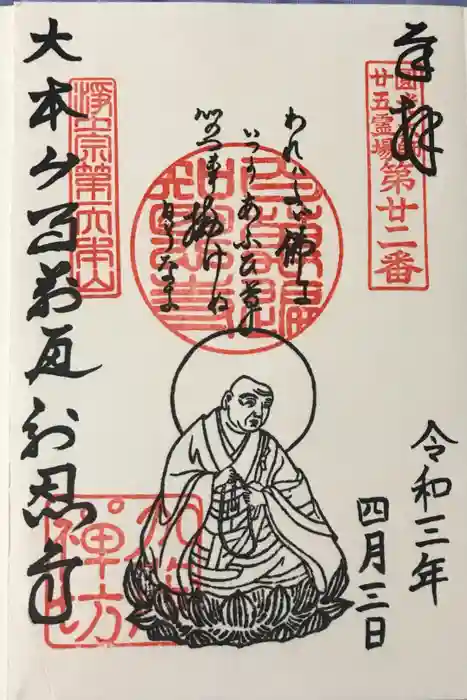 奉拝
圓光大師
廿五霊場
第廿二番
令和三年
四月三日
われはただ佛に
いつかあふひ草
心のつまに
かけぬ
日ぞなき
淨土宗第六本山
大本山百萬遍知恩寺
禪坊